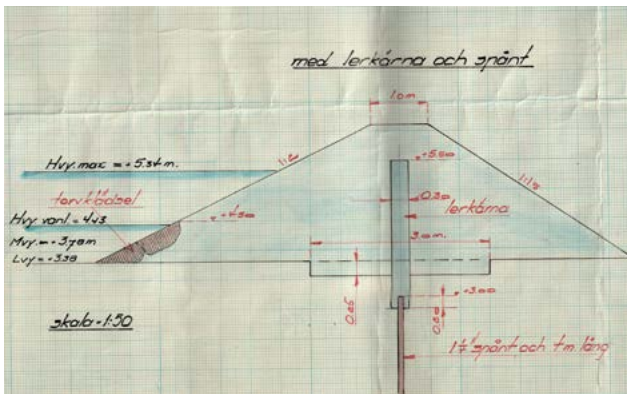 med lerkärna och spånt
1.0m
1:2
Hvy. max = +5.34 m.
+5.50
1:1.5
torvklädsel
0.30
lerkärna
Hvy. vanl. = 4.43
+4.50
Mvy. = +3.78m
3.0m.
Lvy = +3.38
0.25
+3.00
0.50
skala = 1:50
spånt och 1 m. lång